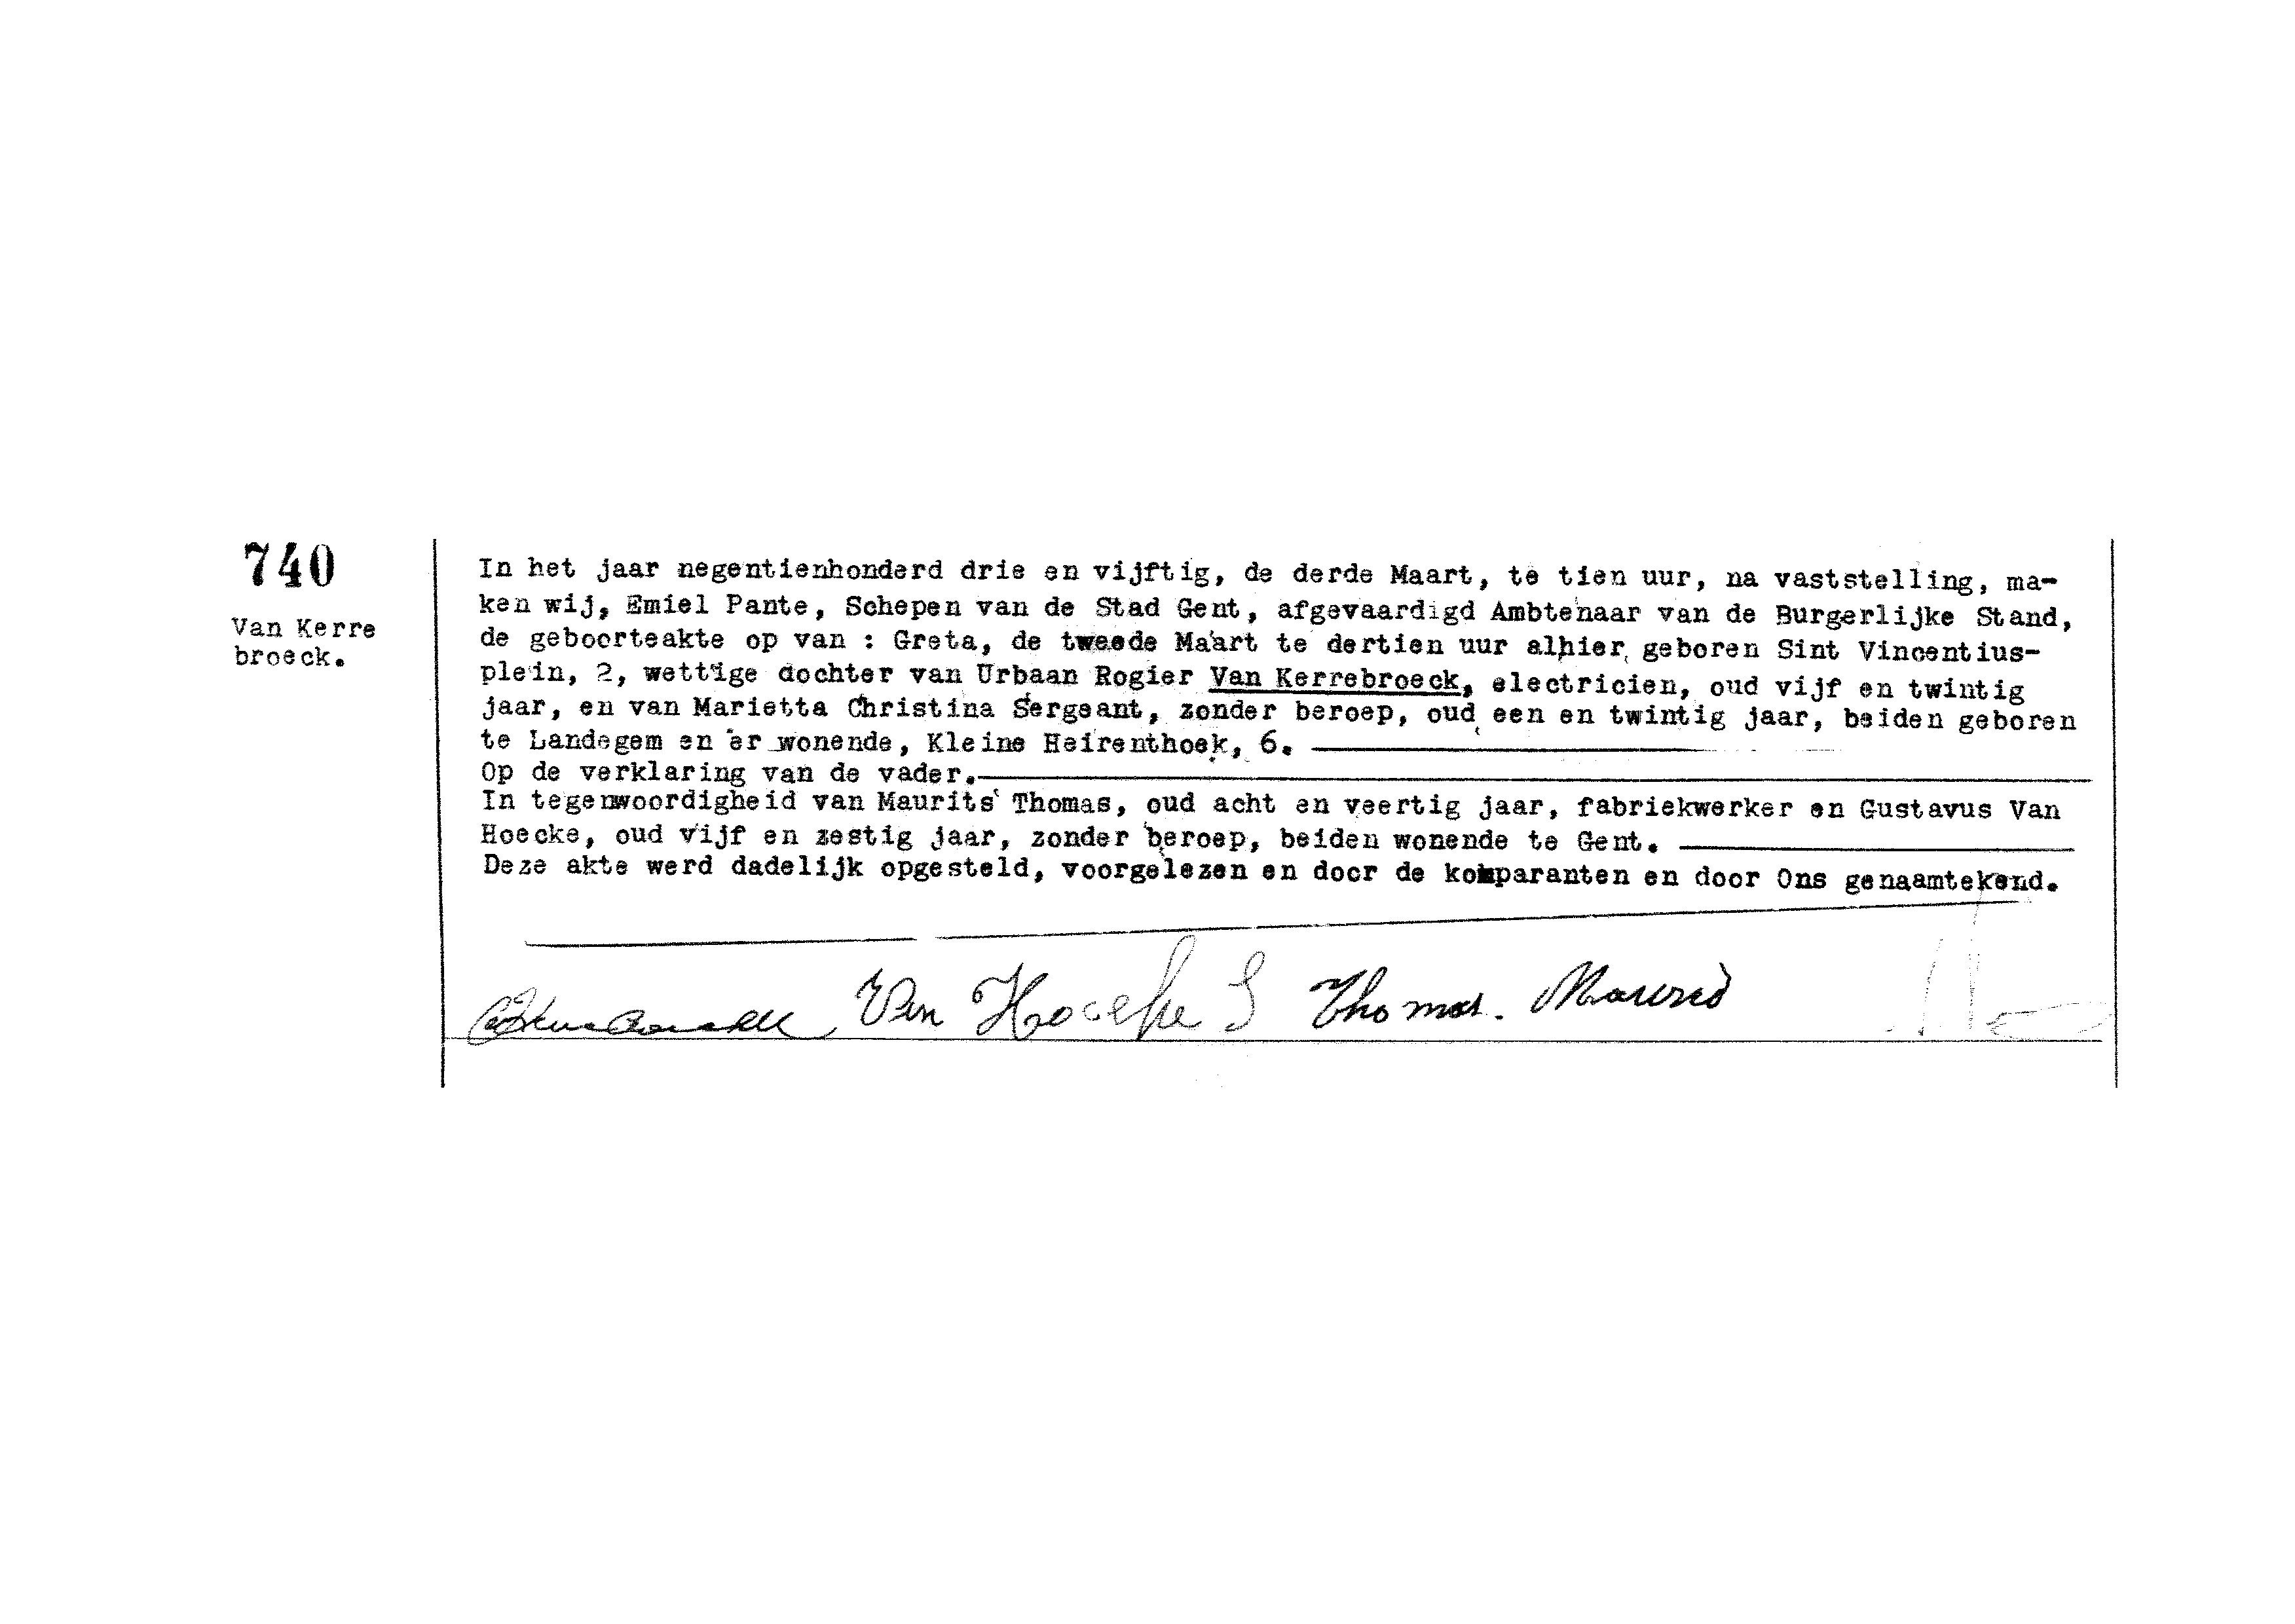 740
Van Kerre
broeck.
In het jaar negentienhonderd drie en vijftig, de derde Maart, te tien uur, na vaststelling, ma-
ken wij, Emiel Pante, Schepen van de Stad Gent, afgevaardigd Ambtenaar van de Burgerlijke Stand,
de geboorteakte op van : Greta, de tweede Maart te dertien uur alhier geboren Sint Vincentius-
plein, 2, wettige dochter van Urbaan Rogier Van Kerrebroeck, electricien, oud vijf en twintig
jaar, en van Marietta Christina Sergeant, zonder beroep, oud een en twintig jaar, beiden geboren
te Landegem en er wonende, Kleine Heirenthoek, 6.
Op de verklaring van de vader.
In tegenwoordigheid van Maurits Thomas, oud acht en veertig jaar, fabriekwerker en Gustavus Van
Hoecke, oud vijf en zestig jaar, zonder beroep, beiden wonende te Gent.
Deze akte werd dadelijk opgesteld, voorgelezen en door de komparanten en door Ons genaamtekend.
Van Hoecke G Thomas. Maurits